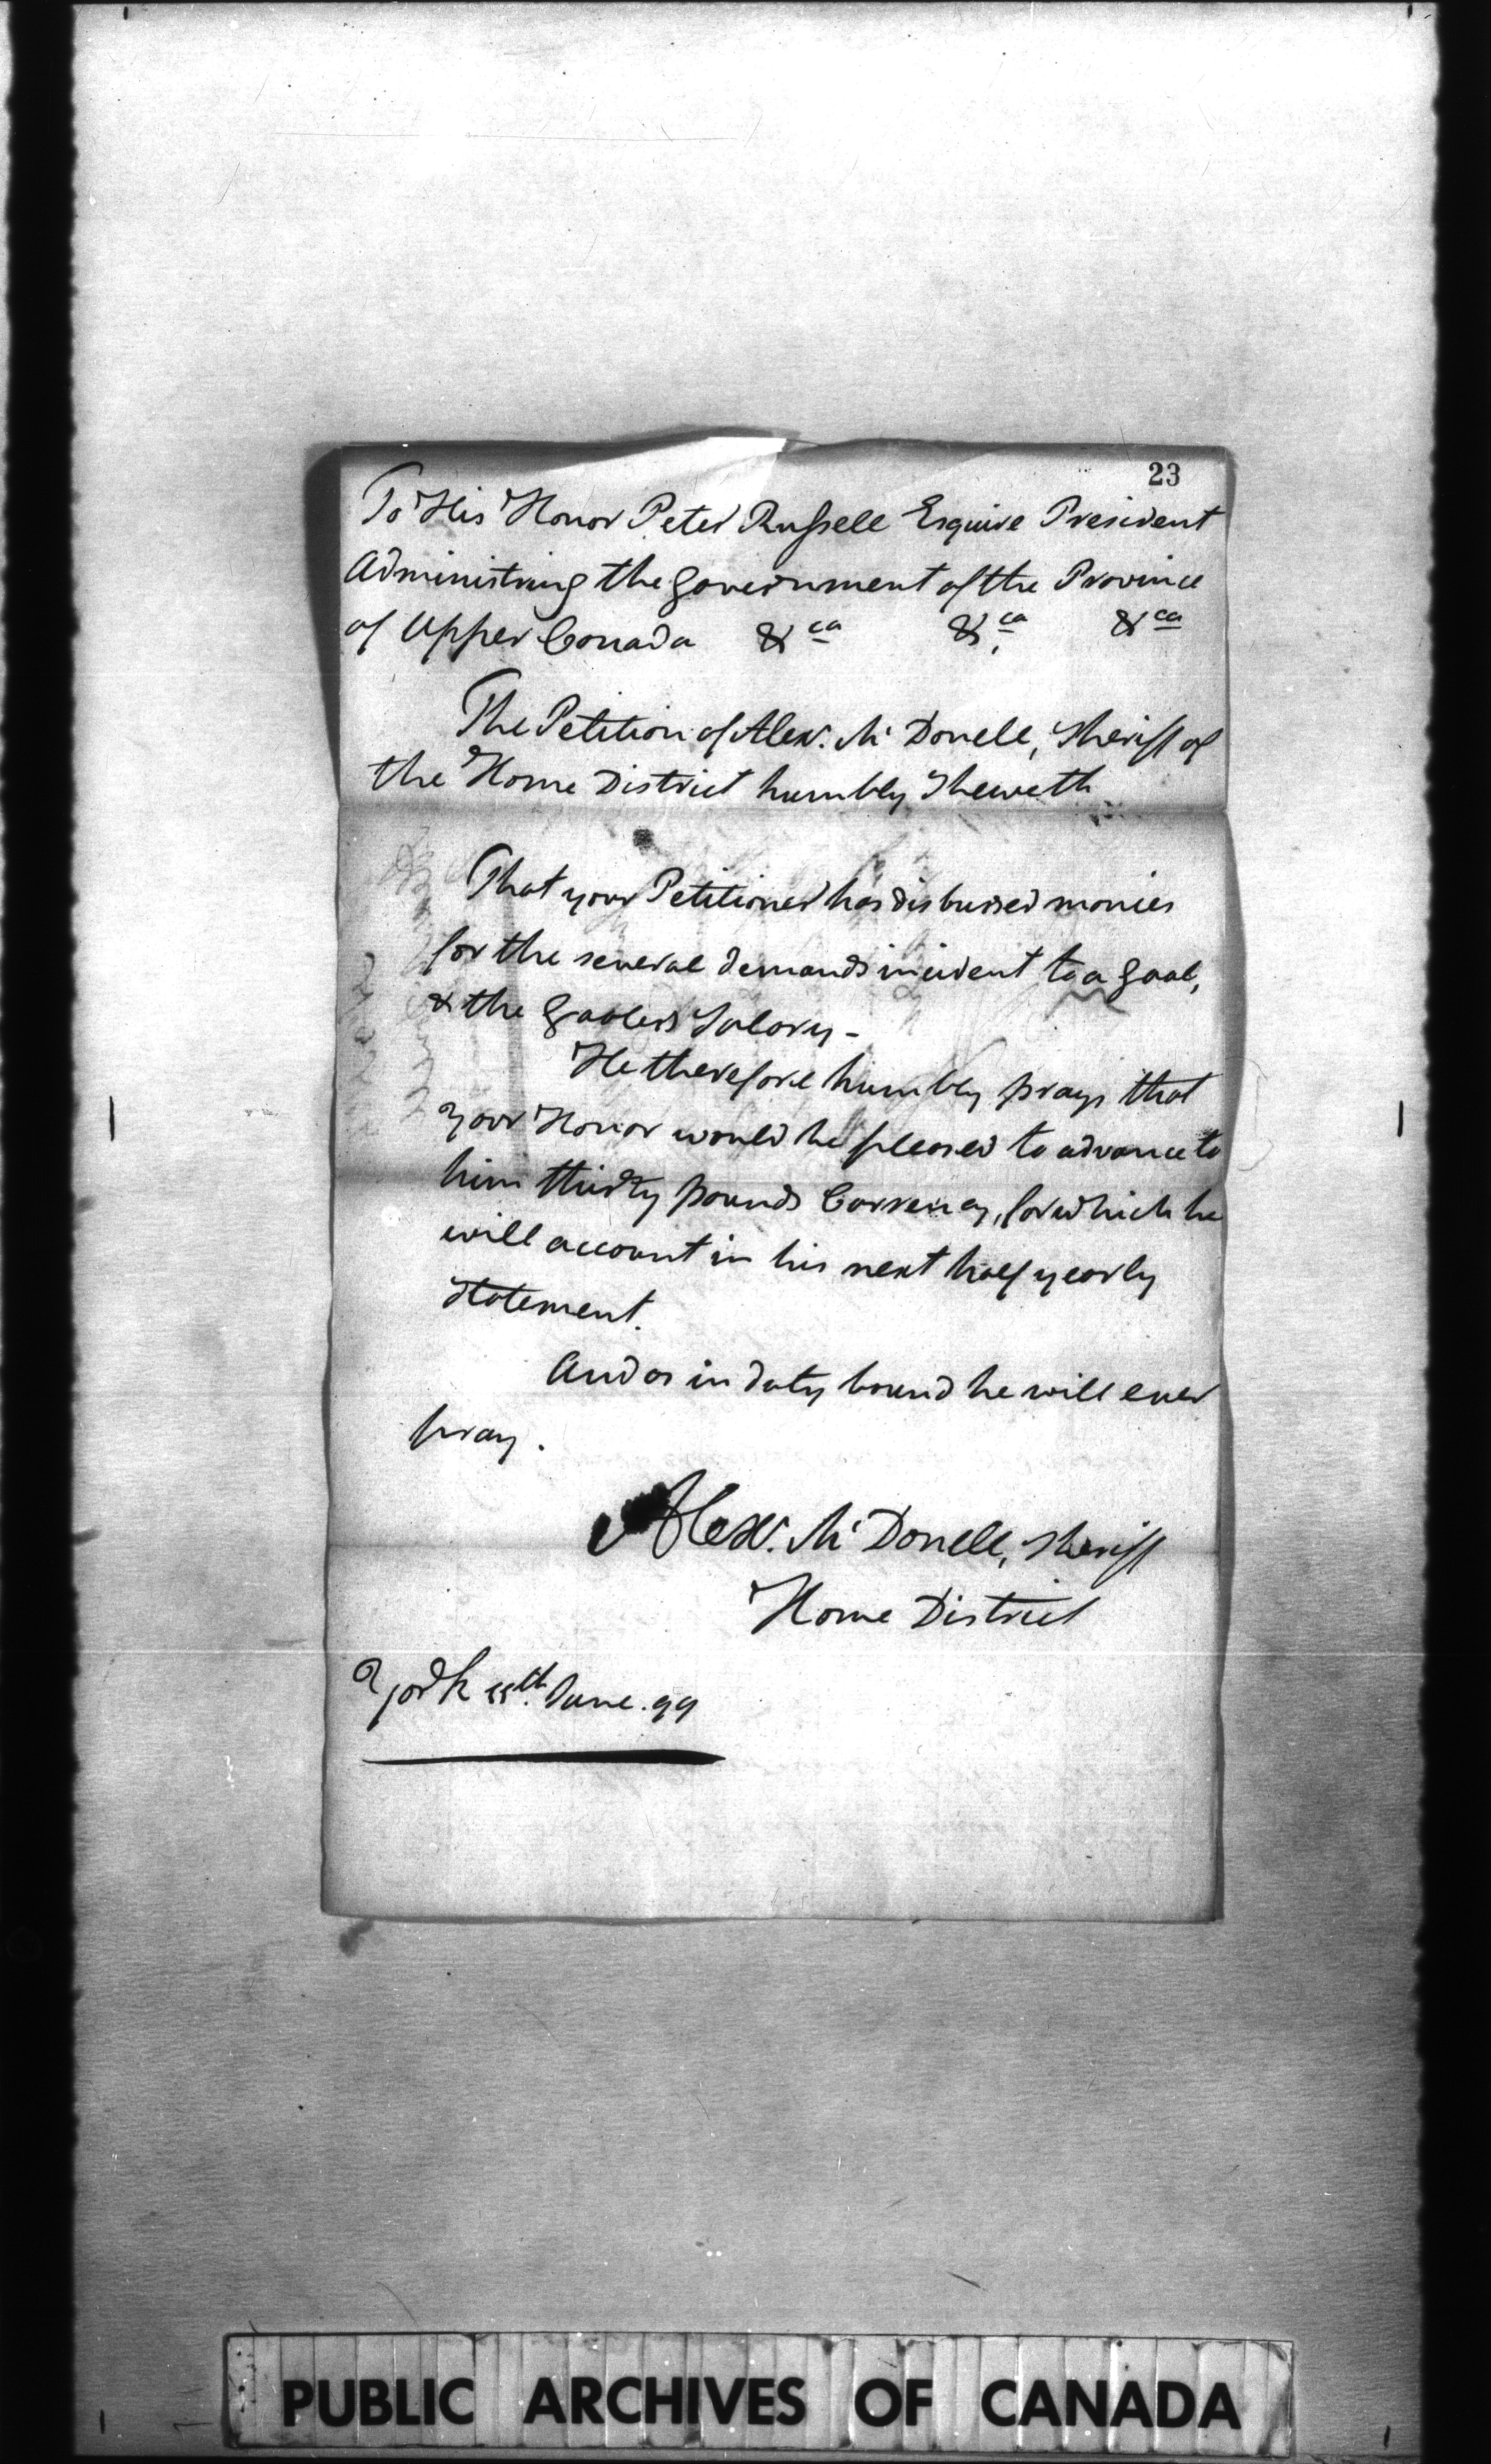 23
To His Honor Peter Russell Esquire President
Administring the Government of the Province
of Upper Canada &ca &ca &ca
The Petition of Alexr. Mc Donell, Sheriff of
the Home District humbly Sheweth
That your Petitioner has disbursed monies
for the several demands incident to a Gaol,
& the Gaolers Salary -
He therefore humbly prays that
your Honor would be pleased to advance to
him thirty pounds Currency, for which he
will account in his next half yearly
Statement.
And as in duty bound he will ever
pray.
Alexr. Mc Donell, Sheriff
Home District
York th. June. 99
PUBLIC ARCHIVES OF CANADA